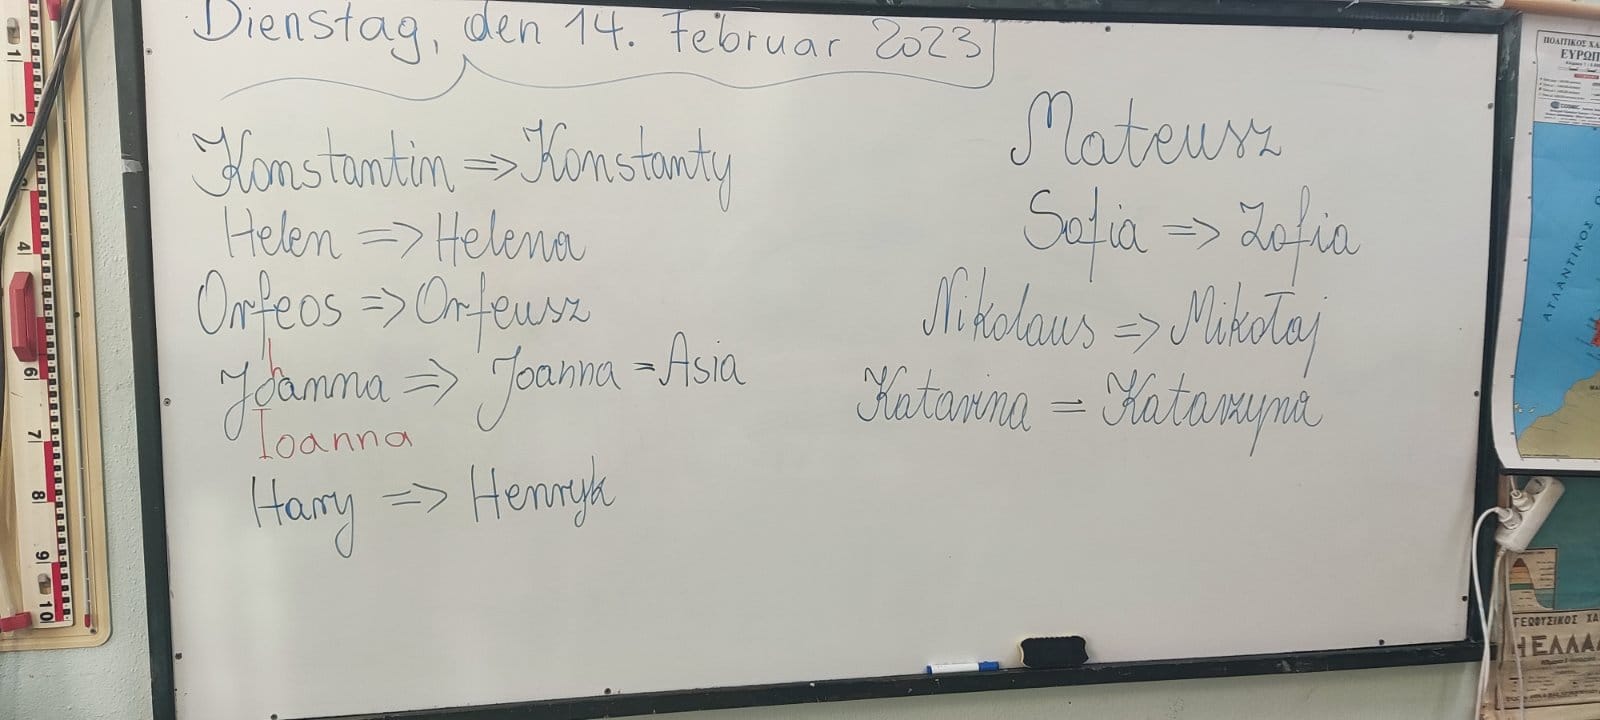 Dienstag, den 14. Februar 2023
Konstantin => Konstanty
Helen => Helena
Orfeos => Orfeusz
Johanna => Joanna = Asia
Ioanna
Harry => Henryk
Mateusz
Sofia => Zofia
Nikolaus => Mikołaj
Katarina = Katarzyna
1
2
4
6
7
8
9
10
ΠΟΛΙΤΙΚΟΣ ΧΑ
ΕΥΡΩΠ
COSMIC
ΑΤΛΑΝΤΙΚΟΣ
ΓΕΩΦΥΣΙΚΟΣ ΧΑ
ΗΕΛΛΑ